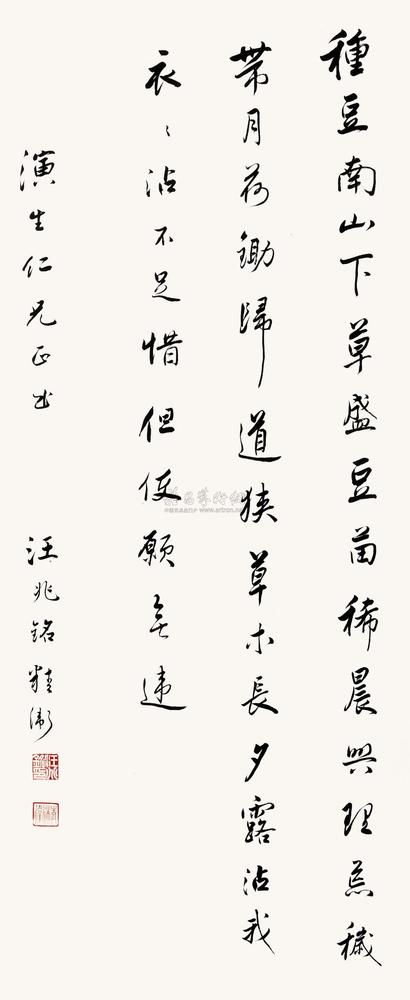 種豆南山下草盛豆苗稀晨興理荒穢
帶月荷鋤歸道狹草木長夕露沾我
衣〻沾不足惜但使願無違
演生仁兄正之
汪兆銘精衛